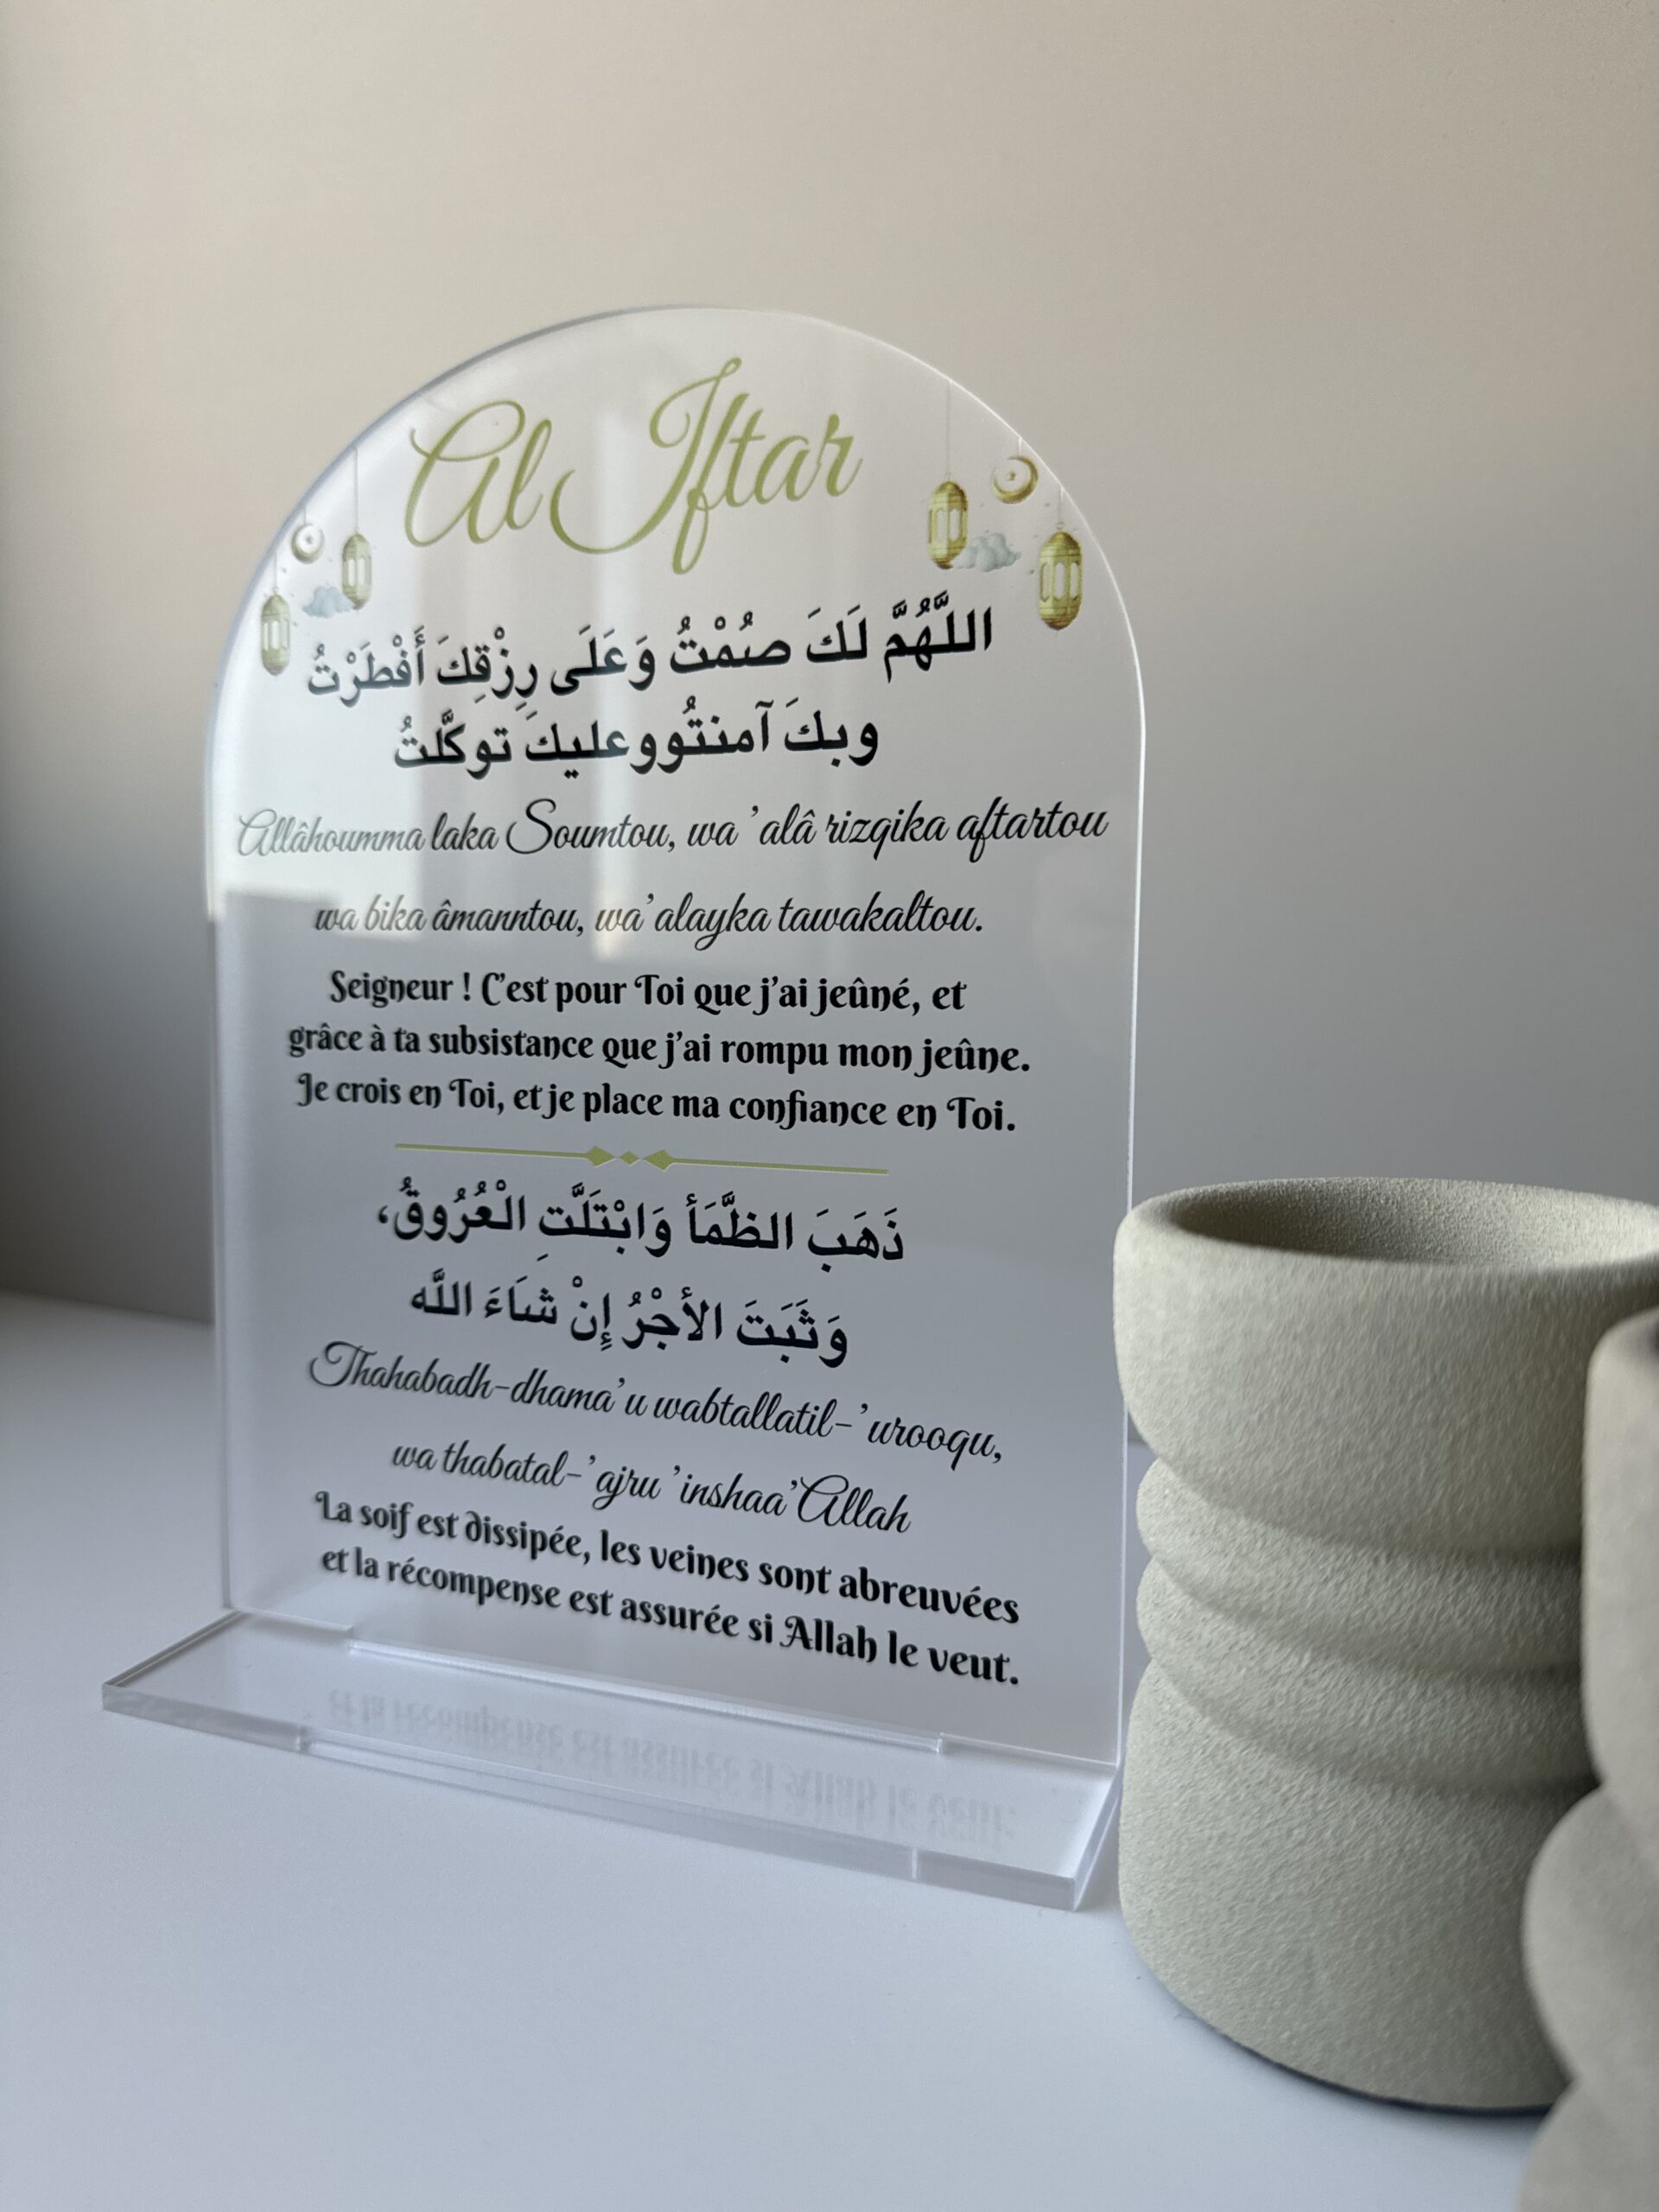 Al Iftar
اللَّهُمَّ لَكَ صُمْتُ وَعَلَى رِزْقِكَ أَفْطَرْتُ
وبكَ آمنتُووعليكَ توكَّلتُ
Allâhoumma laka Soumtou, wa 'alâ rizqika aftartou
wa bika âmanntou, wa'alayka tawakaltou.
Seigneur ! C'est pour Toi que j'ai jeûné, et
grâce à ta subsistance que j'ai rompu mon jeûne.
Je crois en Toi, et je place ma confiance en Toi.
ذَهَبَ الظَّمَأ وَابْتَلَّتِ الْعُرُوقُ،
وَثَبَتَ الأجْرُ إِنْ شَاءَ اللَّه
Thahabadh-dhama'u wabtallatil-'urooqu,
wa thabatal-'ajru 'inshaa'Allah
La soif est dissipée, les veines sont abreuvées
et la récompense est assurée si Allah le veut.